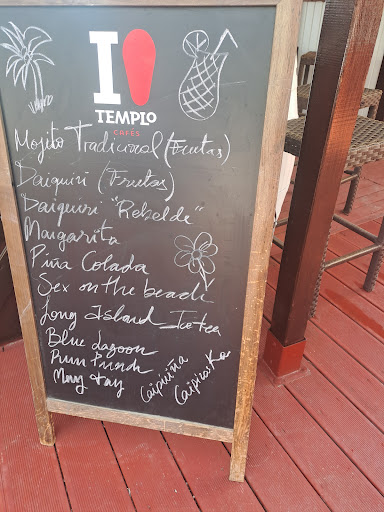 I
TEMPLO
CAFÉS
Mojito Tradicional (Frutas)
Daiquiri (Frutas)
Daiquiri "Rebelde"
Margarita
Piña Colada
Sex on the beach
Long Island Icetea
Blue Lagoon
Rum Punch
May tay
Caipiriña